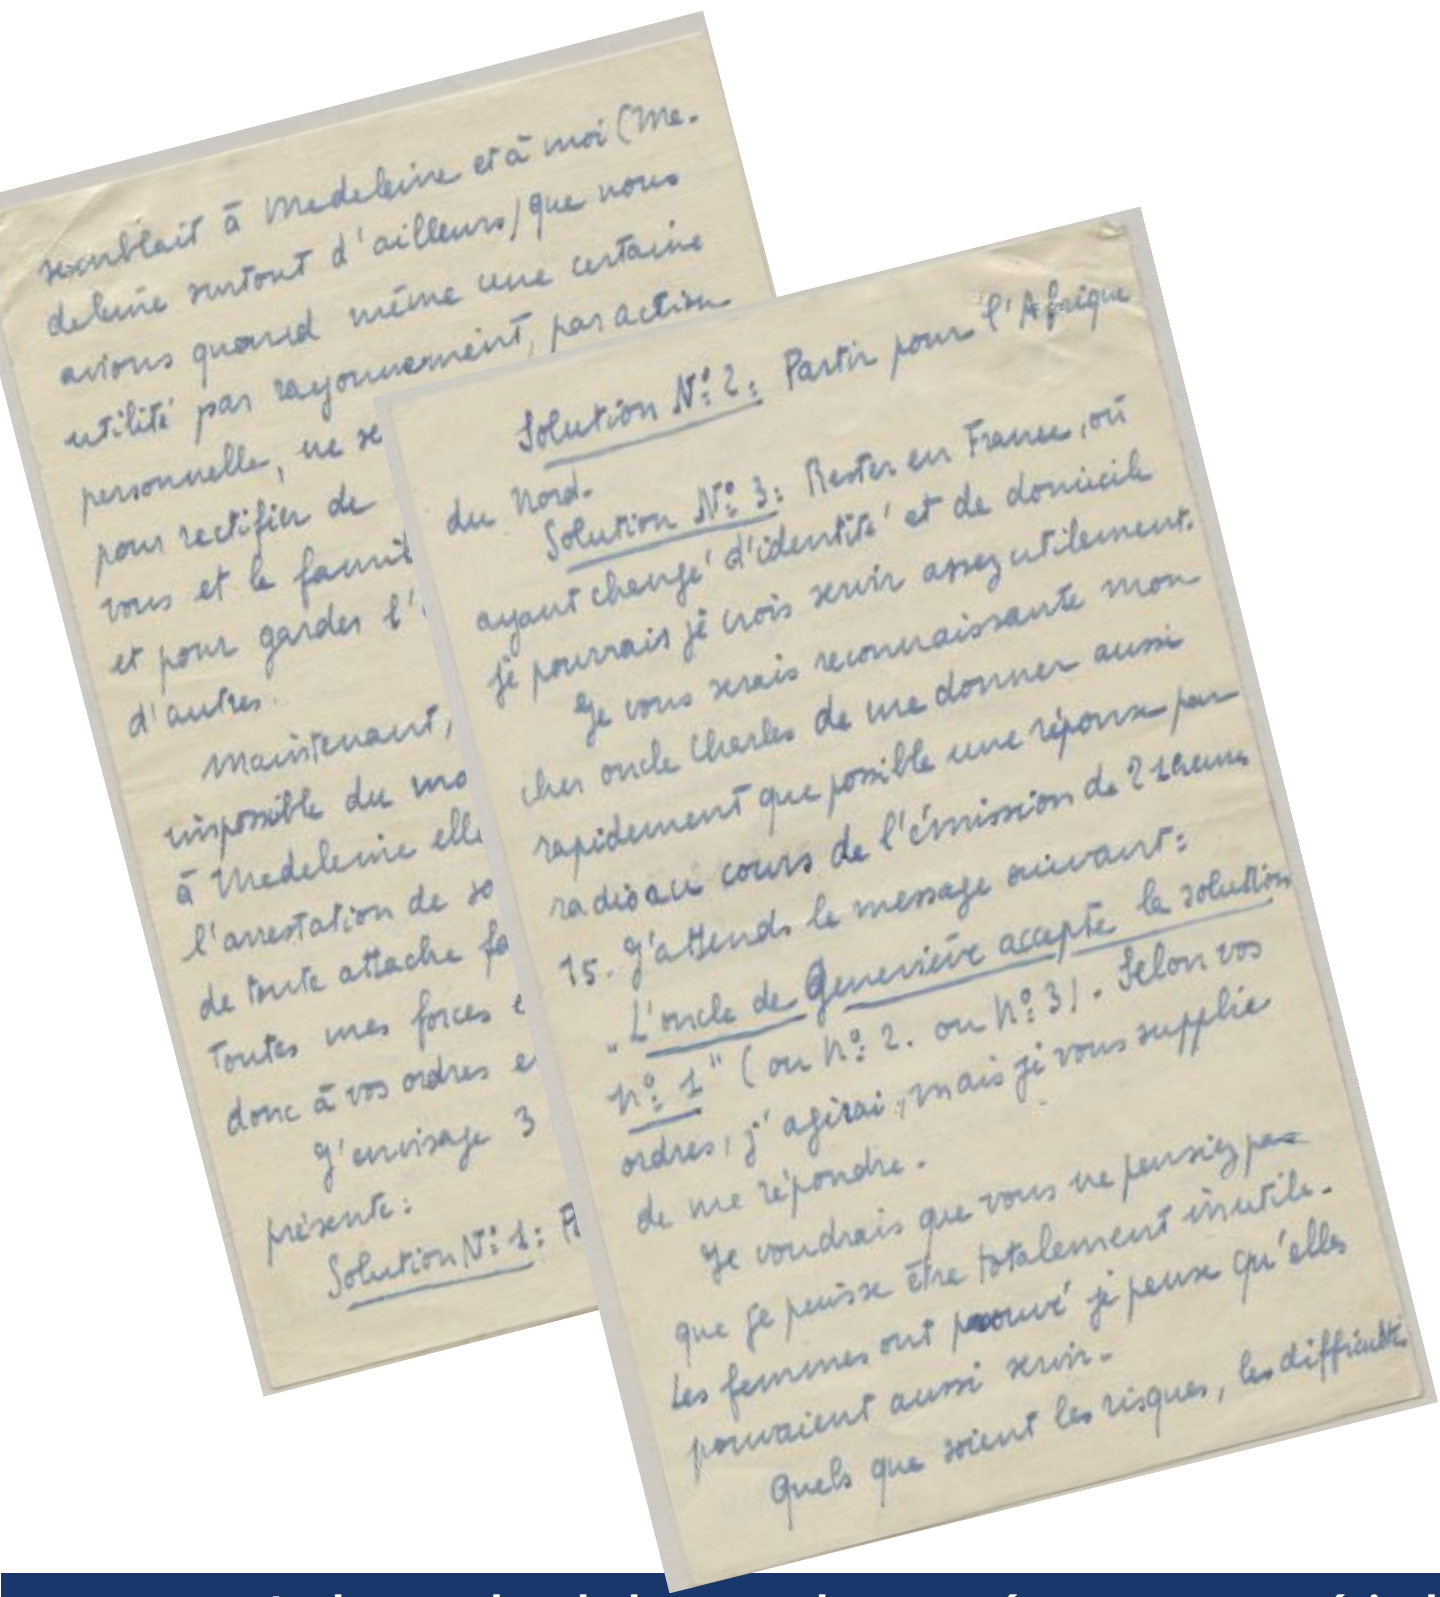 semblait à Medeleine et à moi (Me-
deleine surtout d'ailleurs) que nous
avions quand même une certaine
utilité par rayonnement, par action
personnelle, ne se
pour rectifier de
vous et la famil
et pour garder l'
d'autres.
Maintenant,
impossible du mo
à Medeleine elle
l'arrestation de so
de toute attache fa
Toutes mes forces e
donc à vos ordres e
J'envisage 3
présente:
Solution N° 1: Pa
Solution N° 2: Partir pour l'Afrique
du Nord.
Solution N° 3: Rester en France, où
ayant changé d'identité et de domicile
je pourrais je crois servir assez utilement.
Je vous serais reconnaissante mon
cher oncle Charles de me donner aussi
rapidement que possible une réponse par
radio au cours de l'émission de 21 heures
15. J'attends le message suivant:
"L'oncle de Geneviève accepte la solution
n° 1" (ou n° 2. ou n° 3). Selon vos
ordres, j'agirai, mais je vous supplie
de me répondre.
Je voudrais que vous ne pensiez pas
que je puisse être totalement inutile.
Les femmes ont prouvé je pense qu'elles
pouvaient aussi servir.
Quels que soient les risques, les difficultés